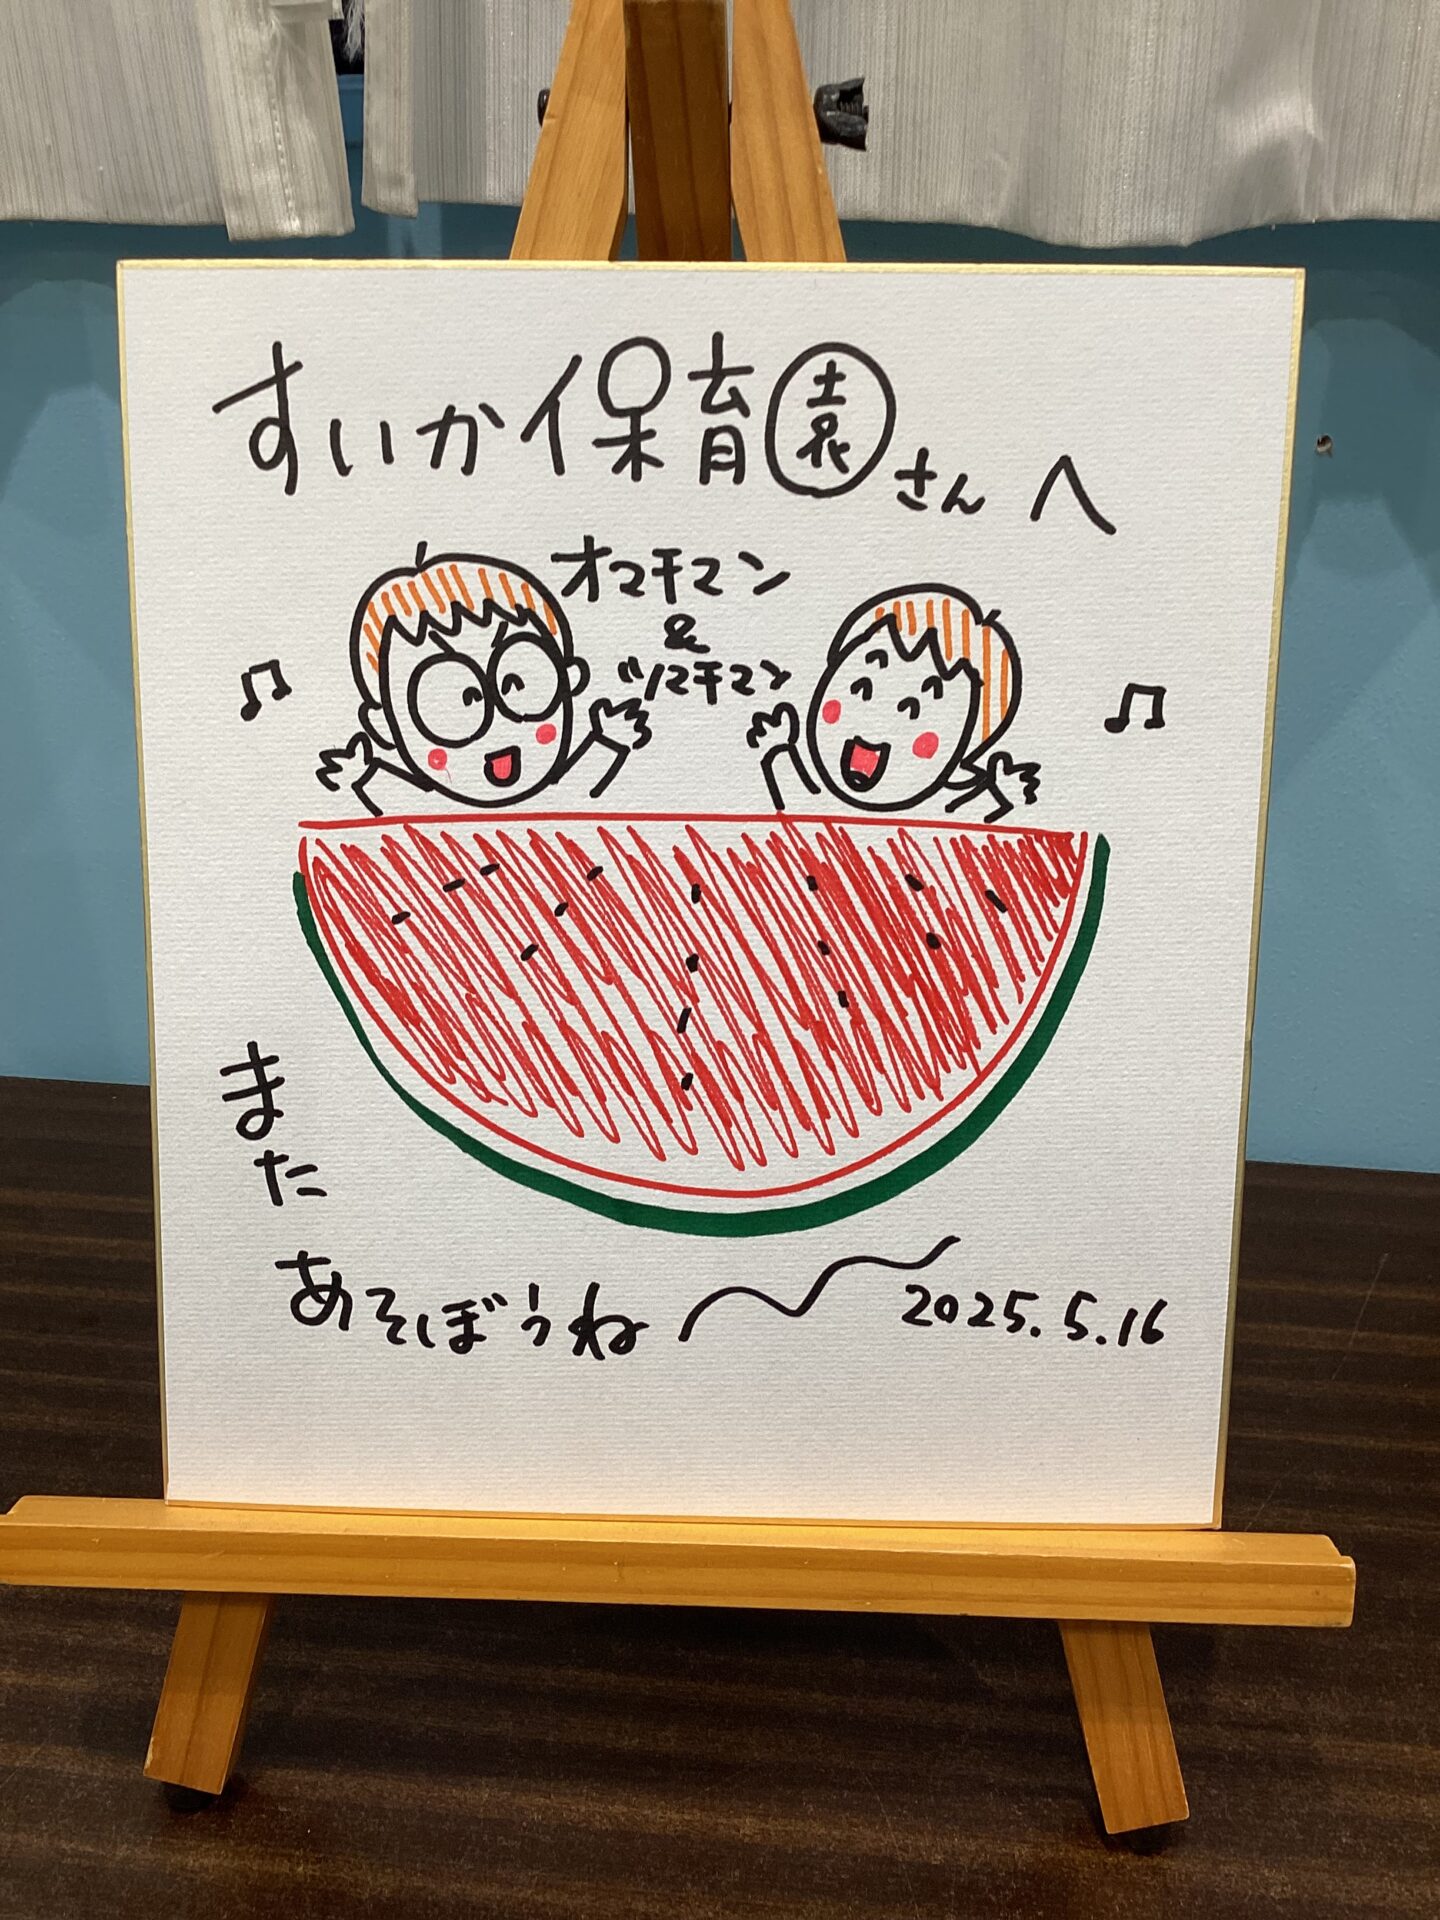 すいか保育園さんへ
オマチマン
&
ツマチマン
また
あそぼうね〜
2025.5.16